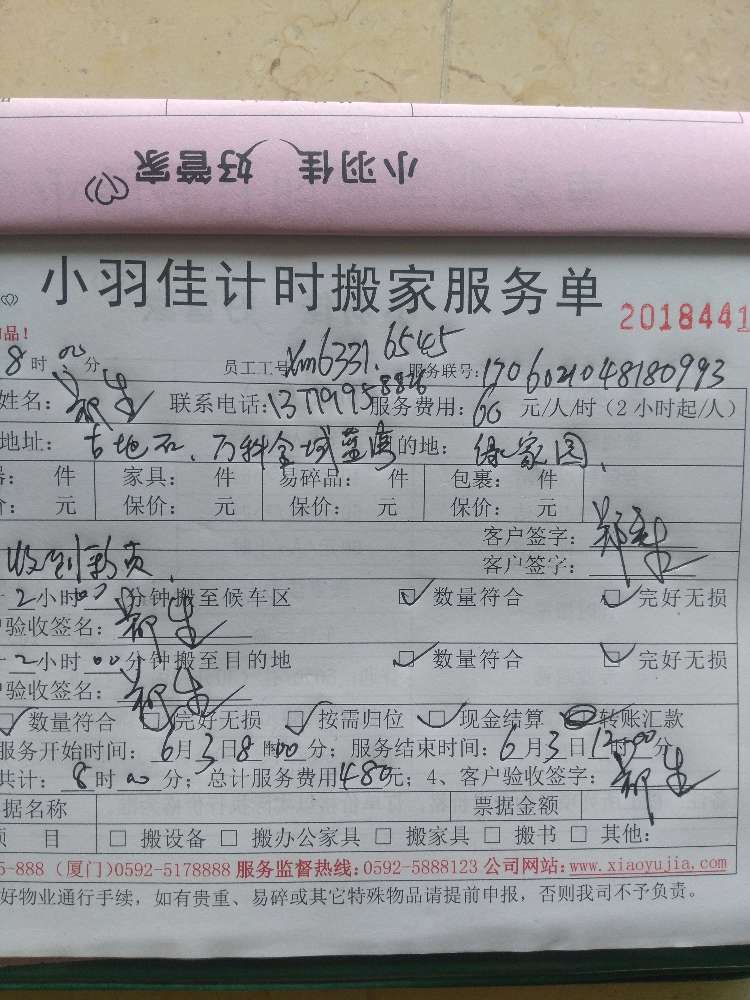 小羽佳 好管家
小羽佳计时搬家服务单
2018441
品！
8时00分 员工工号Xm6331.6545 服务联号:1706021048180993
姓名: 郑生 联系电话:13779958826 服务费用:60元/人/时（2小时起/人）
地址: 古地石、万科金域蓝湾 的地: 绿家园、
: 件 家具: 件 易碎品: 件 包裹: 件
: 元 保价: 元 保价: 元 保价: 元
客户签字: 郑生
收到彩页、 客户签字:
2小时00分钟搬至候车区 ☑数量符合 ☑完好无损
验收签名: 郑生
2小时00分钟搬至目的地 ☑数量符合 ☑完好无损
验收签名: 郑生
☑数量符合 ☑完好无损 ☑按需归位 ☑现金结算 转账汇款
服务开始时间: 6月3日8时00分; 服务结束时间: 6月3日12时00分
共计: 8时00分; 总计服务费用480元; 4、客户验收签字: 郑生
据名称 票据金额
项 目 □ 搬设备 □ 搬办公家具 □ 搬家具 □ 搬书 □ 其他:
5-888（厦门)0592-5178888 服务监督热线:0592-5888123 公司网站:www.xiaoyujia.com
好物业通行手续，如有贵重、易碎或其它特殊物品请提前申报，否则我司不予负责。